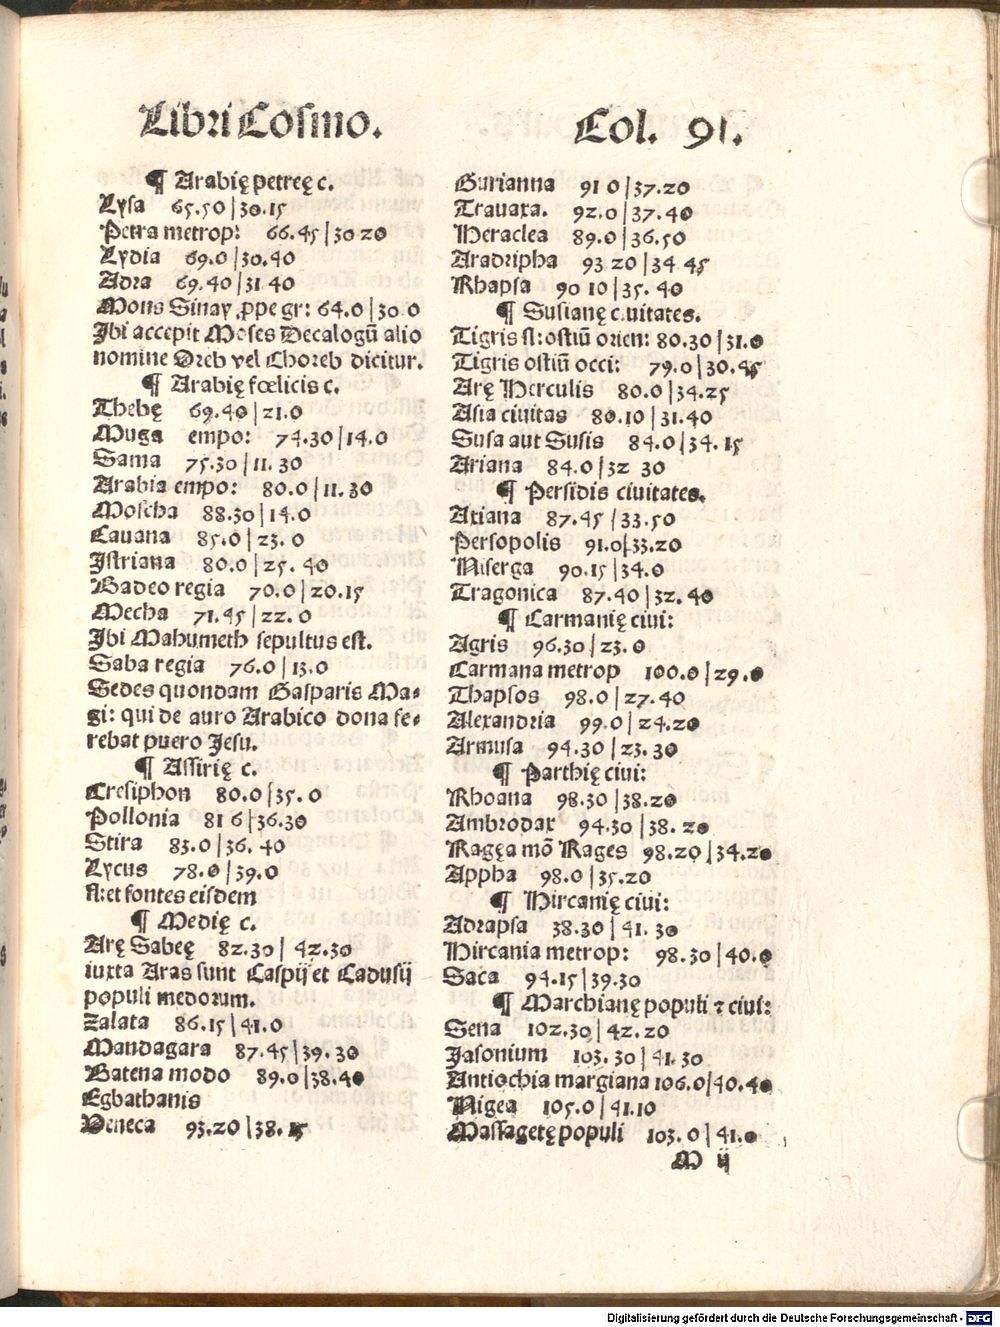 Libri Cosmo.
Col. 91.
¶ Arabię petreę c.
Lysa 65.50|30.15
Petra metrop: 66.45|30 20
Lydia 69.0|30.40
Adra 69.40|31 40
Mons Sinay ꝓpe gr: 64.0|30 0
Jbi accepit Moses Decalogū alio
nomine Oreb vel Choreb dicitur.
¶ Arabię fœlicis c.
Thebę 69.40|21.0
Muga empo: 74.30|14.0
Sama 75.30|11. 30
Arabia empo: 80.0|11.30
Moscha 88.30|14.0
Cauana 85.0|23. 0
Jstriana 80.0|25. 40
Badeo regia 70.0|20.15
Mecha 71.45|22. 0
Jbi Mahumeth sepultus est.
Saba regia 76.0|13.0
Sedes quondam Gasparis Ma⸗
gi: qui de auro Arabico dona fe⸗
rebat puero Jesu.
¶ Assirię c.
Cresiphon 80.0|35. 0
Pollonia 81 6|36.30
Stira 83.0|36. 40
Lycus 78.0|39.0
fl: et fontes eisdem
¶ Medię c.
Arę Sabeę 82.30| 42.30
iuxta Aras sunt Caspij et Cadusij
populi medorum.
Zalata 86.15|41.0
Mandagara 87.45|39. 30
Batena modo 89.0|38.40
Egbathanis
Veneca 93.20|38. 15
Gurianna 91 0|37.20
Trauaxa. 92.0|37.40
Heraclea 89.0|36.50
Aradripha 93 20|34 45
Rhapsa 90 10|35. 40
¶ Susianę c.uitates.
Tigris fl: ostiū orien: 80.30|31.0
Tigris ostiū occi: 79.0|30.45
Arę Herculis 80.0|34.25
Asia ciuitas 80.10|31.40
Susa aut Susis 84.0|34. 15
Ariana 84.0|32 30
¶ Persidis ciuitates.
Axiana 87.45|33.50
Persopolis 91.0|33.20
Niserga 90.15|34.0
Tragonica 87.40|32. 40
¶ Carmanię ciui:
Agris 96.30|23. 0
Carmana metrop 100.0|29.0
Thapsos 98.0|27.40
Alexandria 99.0|24.20
Armusa 94.30|23. 30
¶ Parthię ciui:
Rhoana 98.30|38.20
Ambrodax 94.30|38. 20
Ragęa mō Rages 98.20|34.20
Appha 98.0|35.20
¶ Hircanię ciui:
Adrapsa 38.30|41. 30
Hircania metrop: 98.30|40.0
Saca 94.15|39.30
¶ Marchianę populi ⁊ ciui:
Sena 102.30|42. 20
Jasonium 103.30|41.30
Antiochia margiana 106.0|40.40
Nigea 105.0|41.10
Massagetę populi 103.0|41.0
M ij
Digitalisierung gefördert durch die Deutsche Forschungsgemeinschaft - DFG